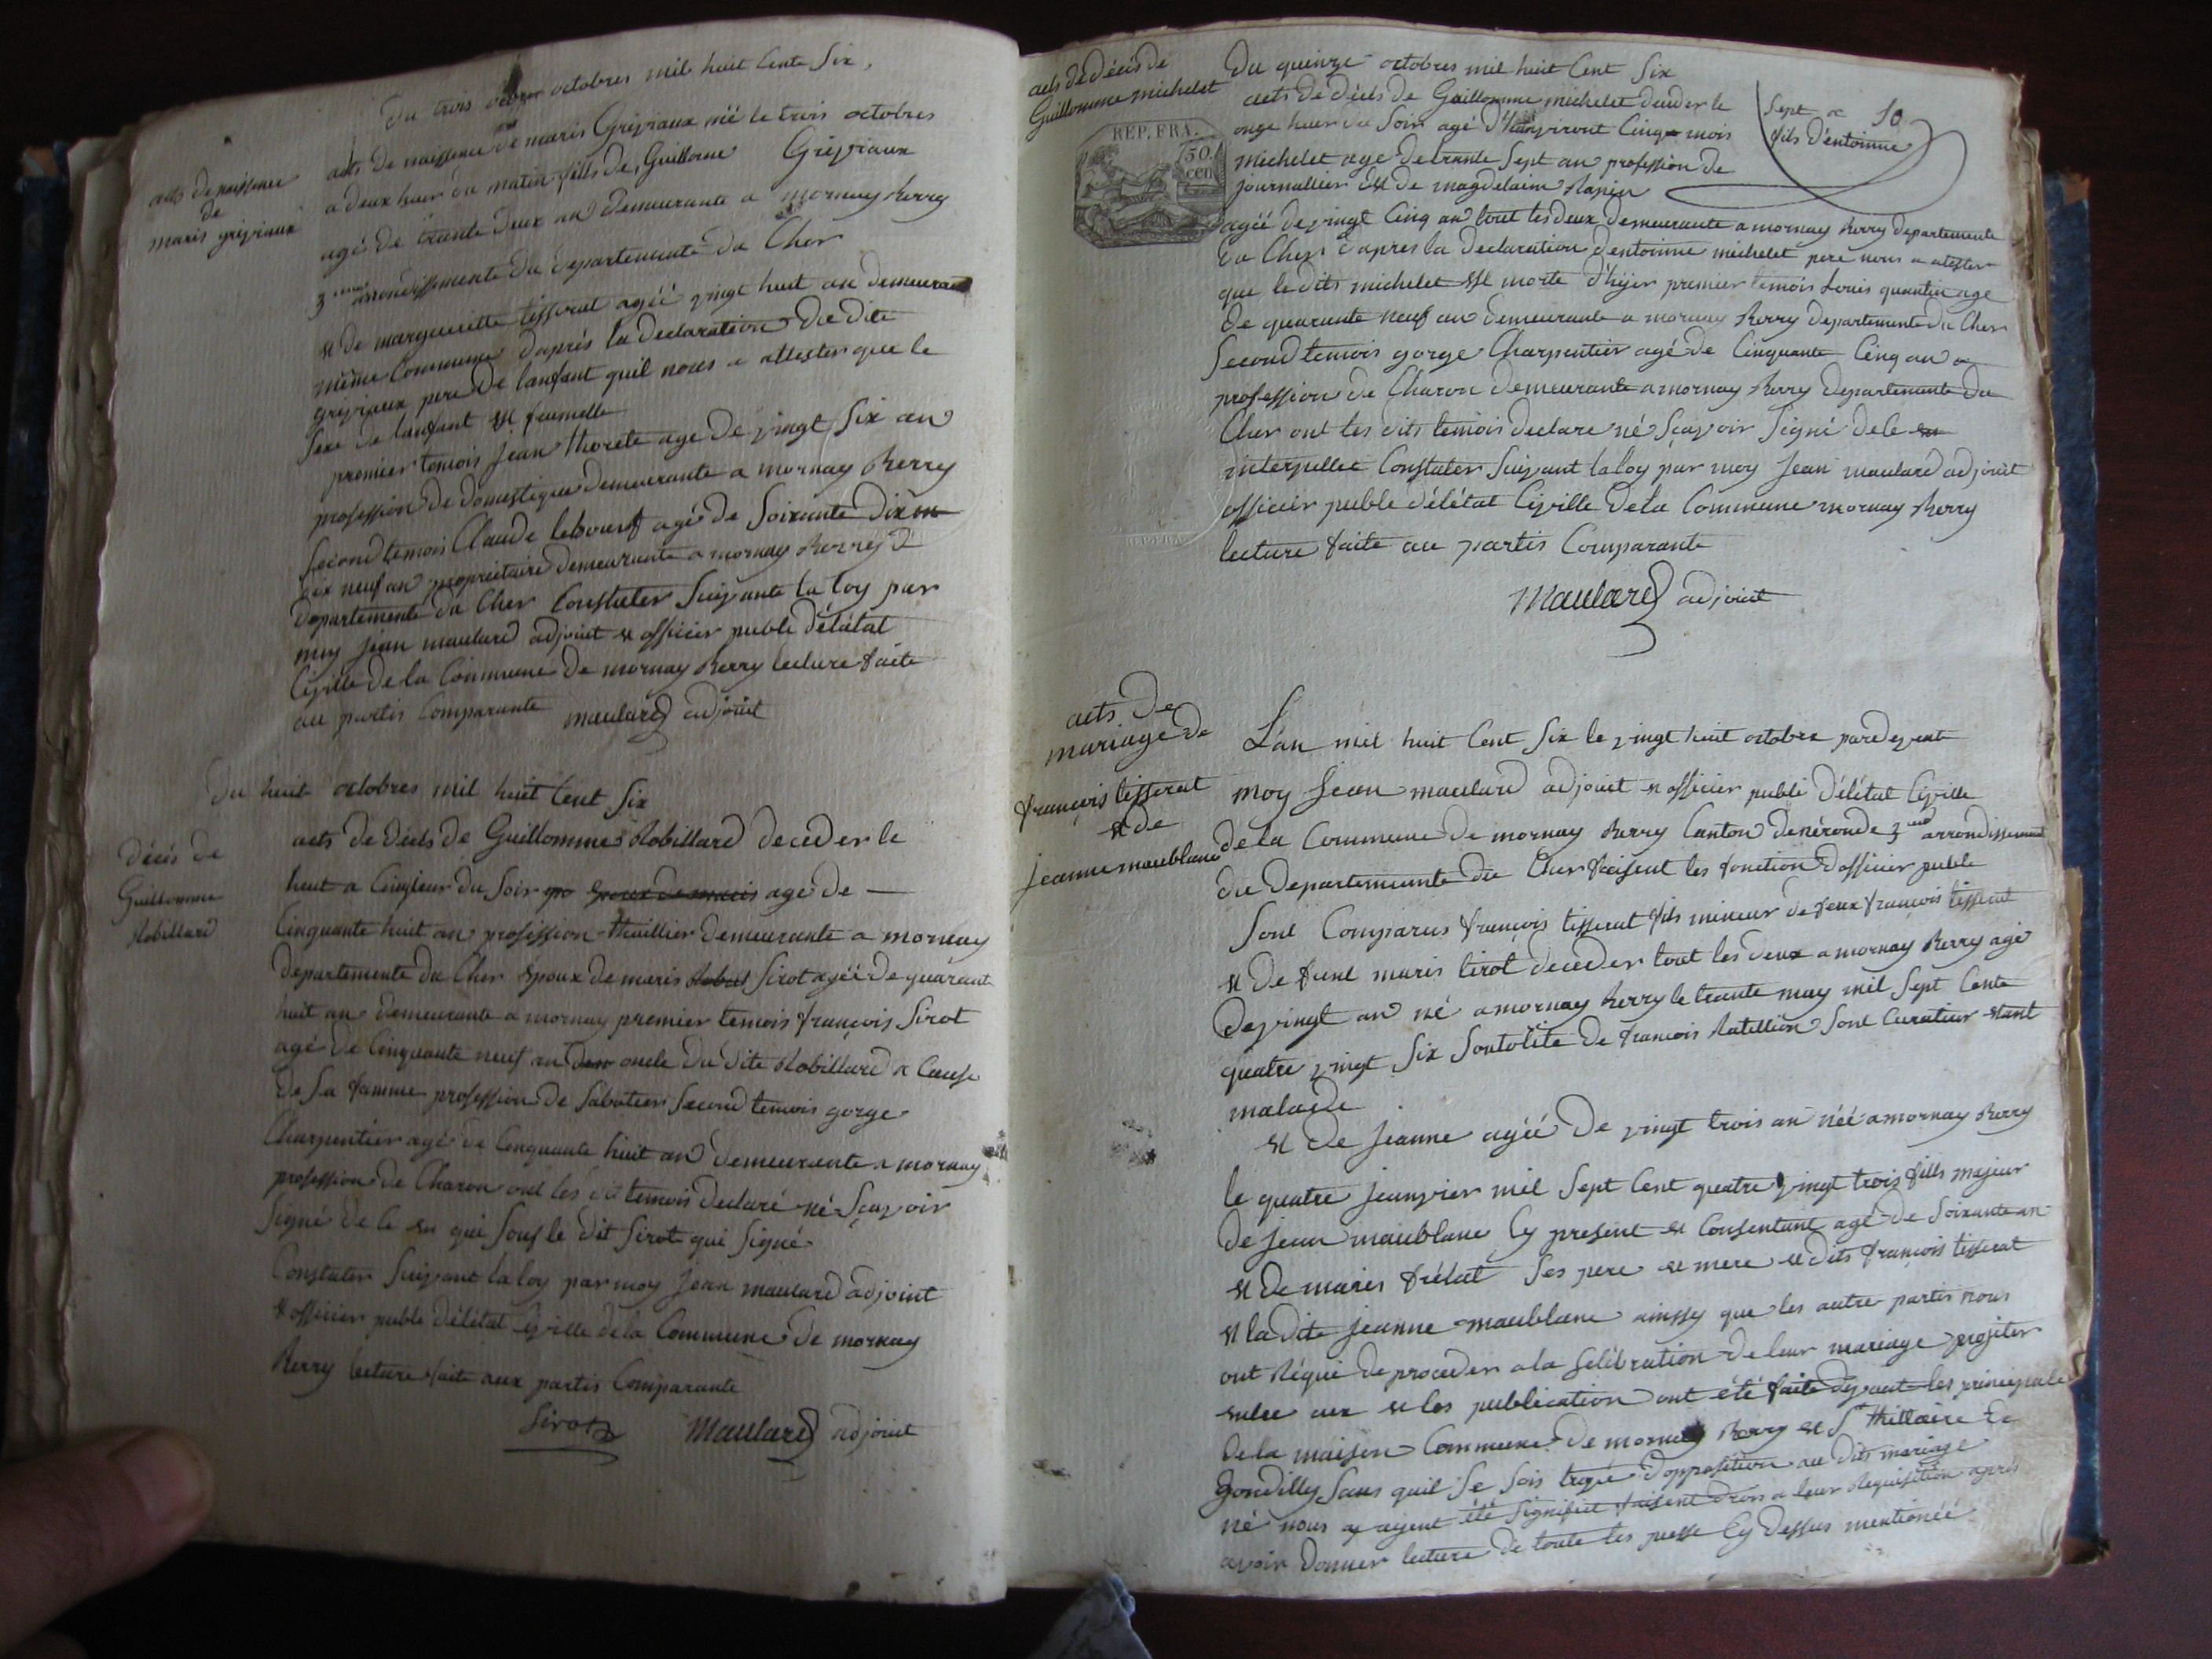 du trois octobres mil huit Cents Six,
acts de naissence de
maris grivriaux
acts de naissence de maris Grivriaux née le trois octobres
a deux huer du matin fills de, Guillorme Grivriaux
agé de trante deux an demeurante a mornay Berry
3eme arrondissemente du departemente du Cher
et de margueritte tisserat agéé vingt huit an demeurant
mème Commune daprés la declaration du dite
grivriaux pere de lanfant quil nous a attester que le
sexe de lanfant est feumelle
premier temois Jean thorete age de vingt Six an
profession de domestique demeurante a mornay Berry
Second temois Claude lebourt agé de Soixante dix
dix neuf an propriétaire demeurante a mornay Berry d
departemente du Cher Constater Suivante la loy par
moy Jean maulard adjouit et officier puble délétat
Civille de la Commune de mornay Berry lecture faite
au partis Comparante maulard adjouit
Du huit octobres mil huit Cent Six
décis de
Guillomme
Robillard
acts de décis de Guillomme Robillard deceder le
huit a Cinq huer du Soir epoux de maris agé de
Cinquante huit an profession thuillier demeurante a mornay
departemente du Cher epoux de maris Sirot agéé de quarante
huit an demeurante a mornay premier temois françois Sirot
agé de Cinquante neuf an oncle du dite Robillard a Cause
de Sa famme profession de Sabotier Second temois gorge
Charpentier agé de Cinquante huit an demeurante a mornay
profession de Charon ont les dit temois declaré né Sçavoir
Signé de le en qui Souf le dit Sirot qui Signé
Constater Suivant la loy par moy Jean maulard adjoint
et officier puble délétat Civille de la Commune de mornay
Berry lecture faite aux partis Comparante
Sirot Maulard adjouit
acts de décis de
Guillomme michelet
REP. FRA.
50.
cen.
du quinze octobres mil huit Cent Six
acts de décis de Guillomme michelet deceder le
onze huer du Soir agé d'hanviront Cinq mois
Sept 10
fils d'entoinne
michelet age de trante Sept an profession de
journallier et de magdelaine Rapin
agéé de vingt Cinq an tout les deux demeurante a mornay Berry departemente
du Cher d'apres la declaration d'entoinne michelet pere nous a atester
que le dits michelet est morte d'hijer premier temois Louis quantin age
de quarante neuf an demeurante a mornay Berry departemente du Cher
Second temois gorge Charpentier agé de Cinquante Cinq an
profession de Charon demeurante a mornay Berry departemente du
Cher ont les dits temois declare né Sçavoir Signé de le en
interpellec Constater Suivant la loy par moy Jean maulard adjouit
officier puble délétat Civille de la Commune mornay Berry
lecture faite au partis Comparante
Maulard adjouit
acts de
mariage de
françois tisserat
et de
jeanne maublanc
L'an mil huit Cent Six le vingt huit octobre pardevente
moy Jean maulard adjouit et officier publi délétat Civille
de la Commune de mornay Berry Canton de néronde 3eme arrondissement
du departemente du Cher faisent les fonction d'officier puble
Sont Comparus françois tisserat fils mineur de feux françois tisserat
et de fune maris tirot deceder tout les deux a mornay Berry agé
de vingt an né a mornay Berry le trante may mil Sept Cente
quatre vingt Six Soutolite de francois Ratillion Sont Curatier etant
malade
et de Jeanne agéé de vingt trois an néé a mornay Berry
le quatre Jeanvier mil Sept Cent quatre vingt trois fills majeur
de Jean maublanc Cy present et Consentant agé de Soixante an
et de maris frélat Ses pere et mere et dits françois tisserat
et la dite Jeanne maublanc ainssy que les autre partis nous
ont Réqui de proceder a la Selébration de leur mariage projiter
entre eux et les publication ont été faite devant les principale
de la maison Commune de mornay Berry et St hillaire de
gondilly Sans quil Se Sois trové d'opposition au dits mariage
né nous ayent été Signifiét faisent drois a leur Réquisition aprés
avoir donner lecture de toute les piesse Cy dessus mentionéé